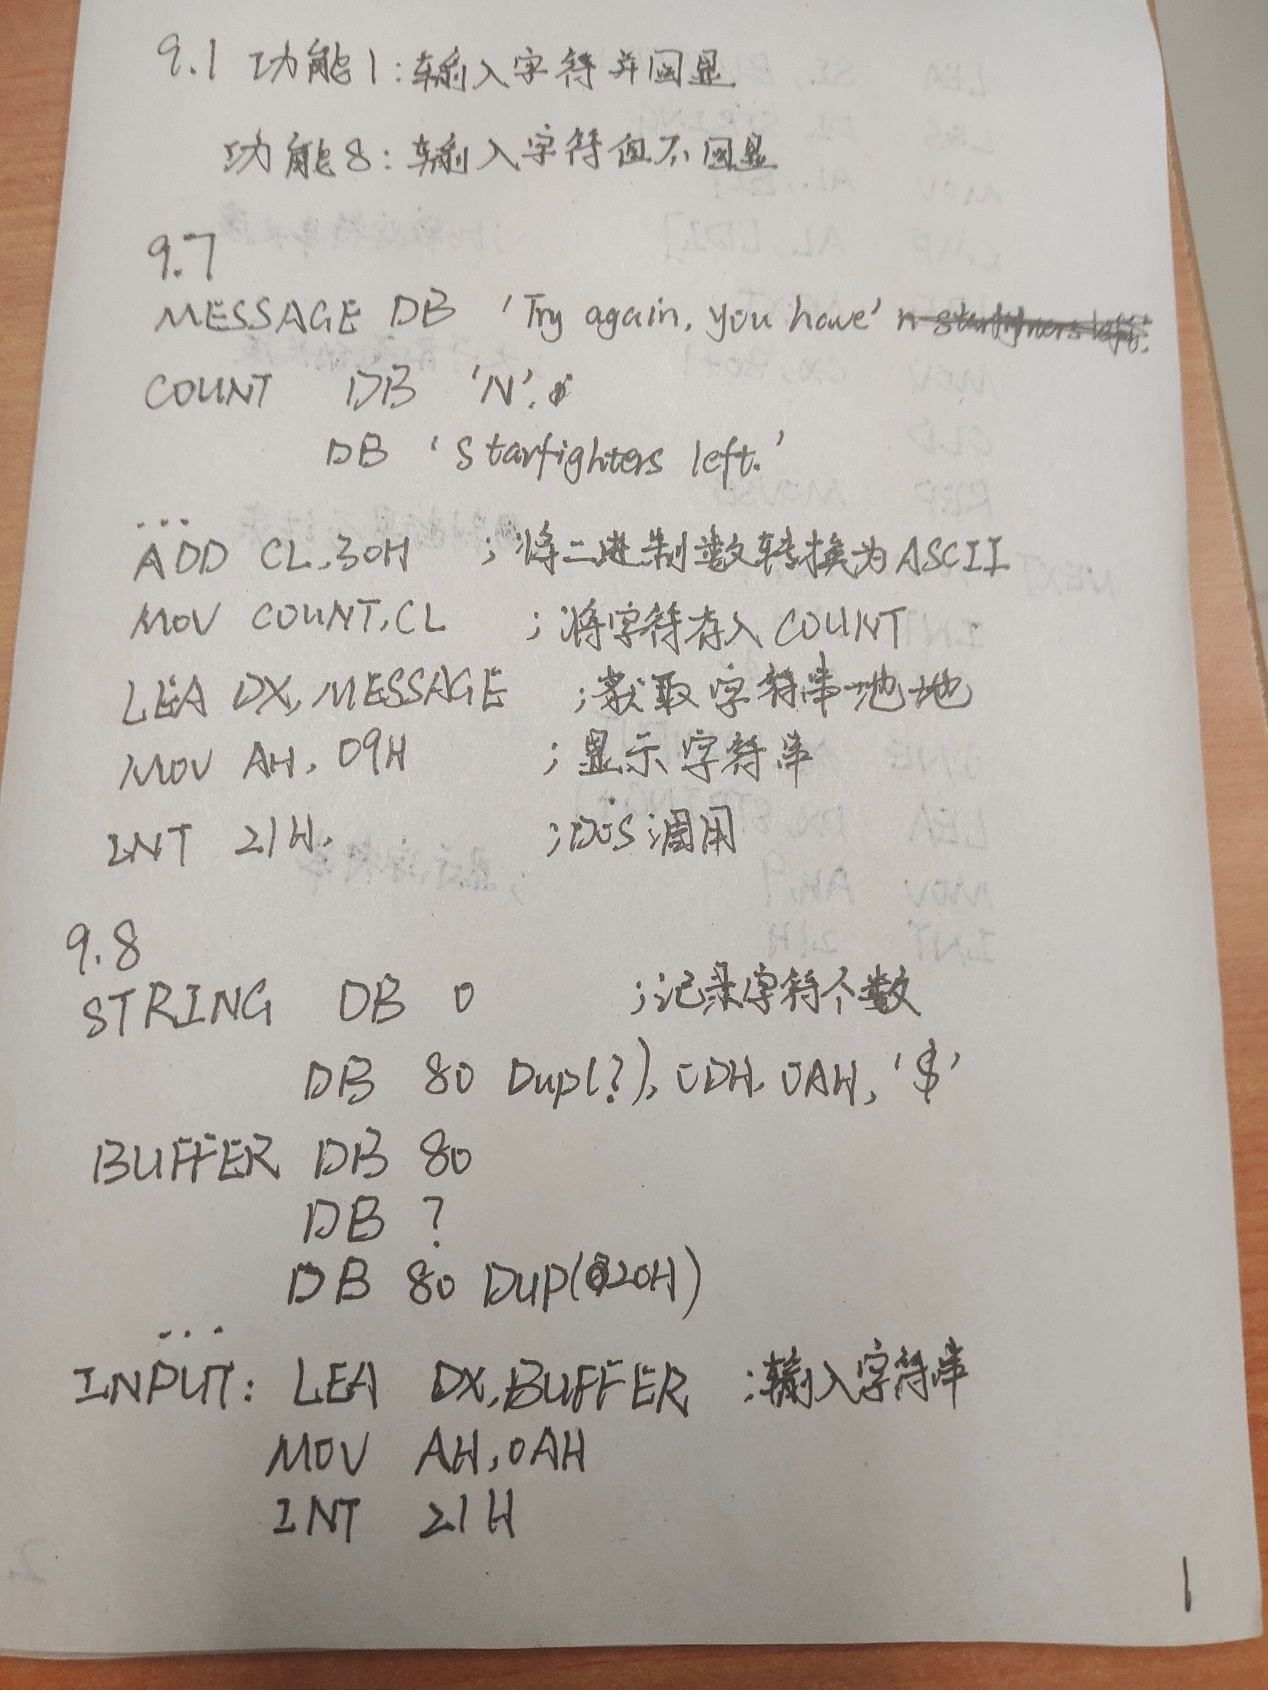 9.1 功能1:输入字符并回显
功能8:输入字符但不回显
9.7
MESSAGE DB 'Try again, you have'
COUNT DB 'N',
DB 'Starfighters left.'
...
ADD CL,30H ;将二进制数转换为ASCII
MOV COUNT,CL ;将字符存入COUNT
LEA DX,MESSAGE ;获取字符串地地
MOV AH,09H ;显示字符串
INT 21H. ;DOS调用
9.8
STRING DB 0 ;记录字符个数
DB 80 Dup(?),0DH,0AH,'$'
BUFFER DB 80
DB ?
DB 80 Dup(20H)
...
INPUT: LEA DX,BUFFER ;输入字符串
MOV AH,0AH
INT 21H
1